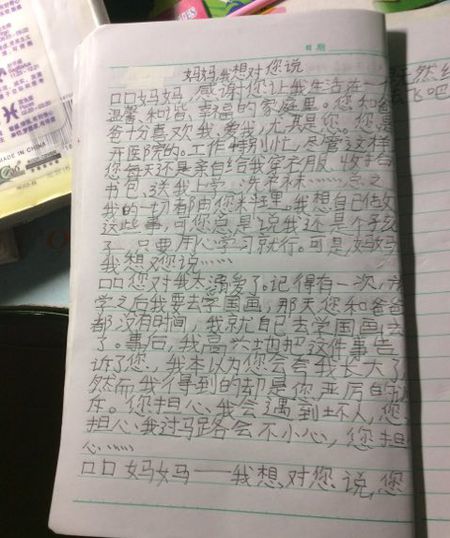 妈妈,我想对您说
口口妈妈,感谢您让我生活在一
温馨、和谐、幸福的家庭里。您和爸
爸十分喜欢我、爱我,尤其是您。您是
开医院的。工作特别忙,尽管这样
您每天还是亲自给我穿衣服、收拾
书包、送我上学、洗衣袜……总之,
我的一切都由您料理。我想自己做
这些事,可您总是说我还是个子孩
了,只要用心学习就行。可是妈妈
我想对您说……
口口您对我太溺爱了。记得有一次,放
学之后我要去学国画,那天您和爸爸
都没有时间,我就自己去学国画去
了。事后,我高兴地把这件事告
诉了您,我本以为您会夸我长大了,
然而我得到的却是您严厉的训
斥。您担心我会遇到坏人,您
担心我过马路会不小心,您担
心……
口口妈妈——我想对您说,您
飞吧
MADE IN CHINA